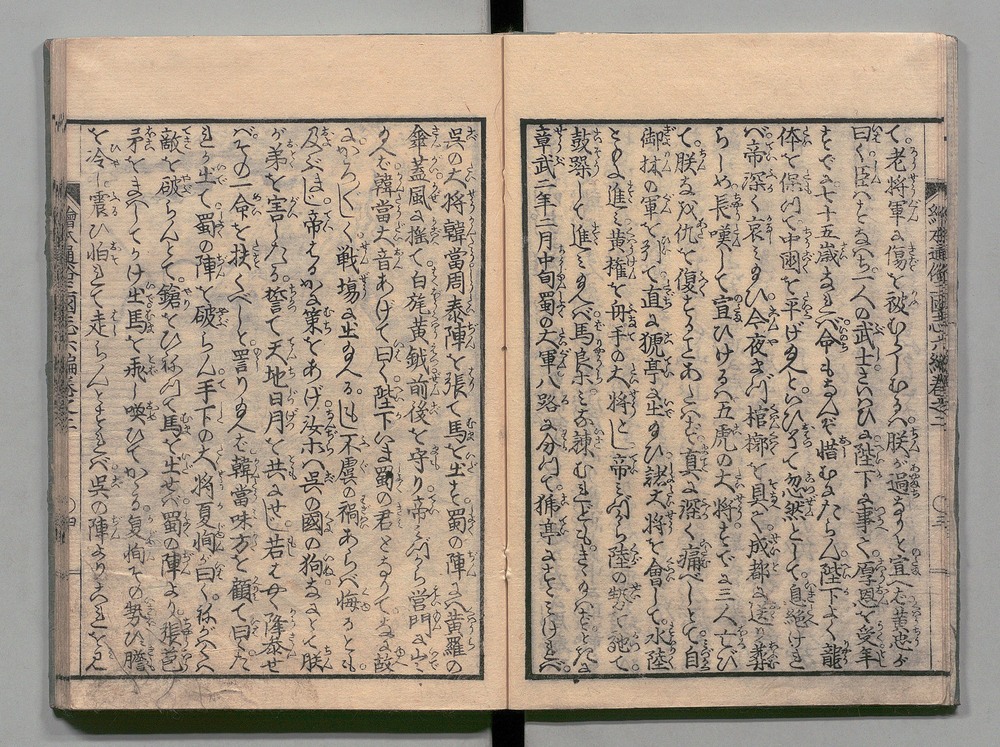 て老将軍に傷を被むらしむるハ朕が過なりと宣へバ黄忠が
曰く臣ハすなハち一人の武士さいハひに陛下に事て厚恩を受年
すでに七十五歳なれバ命もなんぞ惜むにたらん陛下よく龍
体を保つて中國を平げ玉へといひをハつて忽然として息絶けれ
バ帝深く哀ミ玉ひ今夜まづ棺槨を具て成都に送り葬
らしめ長嘆して宣ひけるハ五虎の大将すでに三人亡び
て朕なほ仇を復することあたハず真に深く痛べしとて自
御林の軍を引て直に猇亭に出玉ひ諸大将を會して水陸
ともに進ミ黄権を舟手の大将とし帝ミづから陸の勢を
鼓譟して進ミ玉へバ馬良
章武二年二月中旬蜀の大軍八路に分つて猇亭によせきたれバ
繪本通俗三國志六編巻之二 〇三
呉の大将韓當周泰陣を張て馬を出す蜀の陣にハ黄羅の
傘蓋風に揺て白旄黄鉞前後を守り帝ミづから営門に出
玉へバ韓當大音あげて曰く陛下いま蜀の君となりてなに故
にかろ〴〵しく戦場に出玉へる。もし不虞の禍あらバ悔るとも
及ぶまじ帝はるかに策をあげ汝ホハ呉の國の狗なるにとて朕
が弟を害したる誓て天地日月を共にせじ若はやく降参せ
バその一命を扶くべしと詈り玉へバ韓當味方を顧て曰くた
れか出て蜀の陣を破らん手下の大将夏恂曰く
敵を破らんとて鎗をひねつて馬を出せバ蜀の陣より張苞
矛をまハしてかけ出馬を飛し喚ひてかゝる夏恂その勢ひに膽
を冷し震ひ怕れて走らんとすれバ呉の陣よりこれを見
繪本通俗三國志六編巻之二 〇四